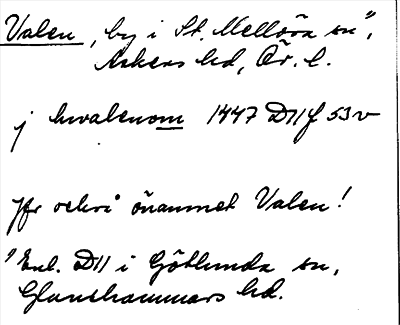 Valen, by i St. Mellösa sn¹⁾,
Askers hd, Ör. l.
j hwalenom 1447 D11f 53v
Jfr också önamnet Valen!
¹⁾ Enl. D11 i Götlunda sn,
Glanshammars hd.